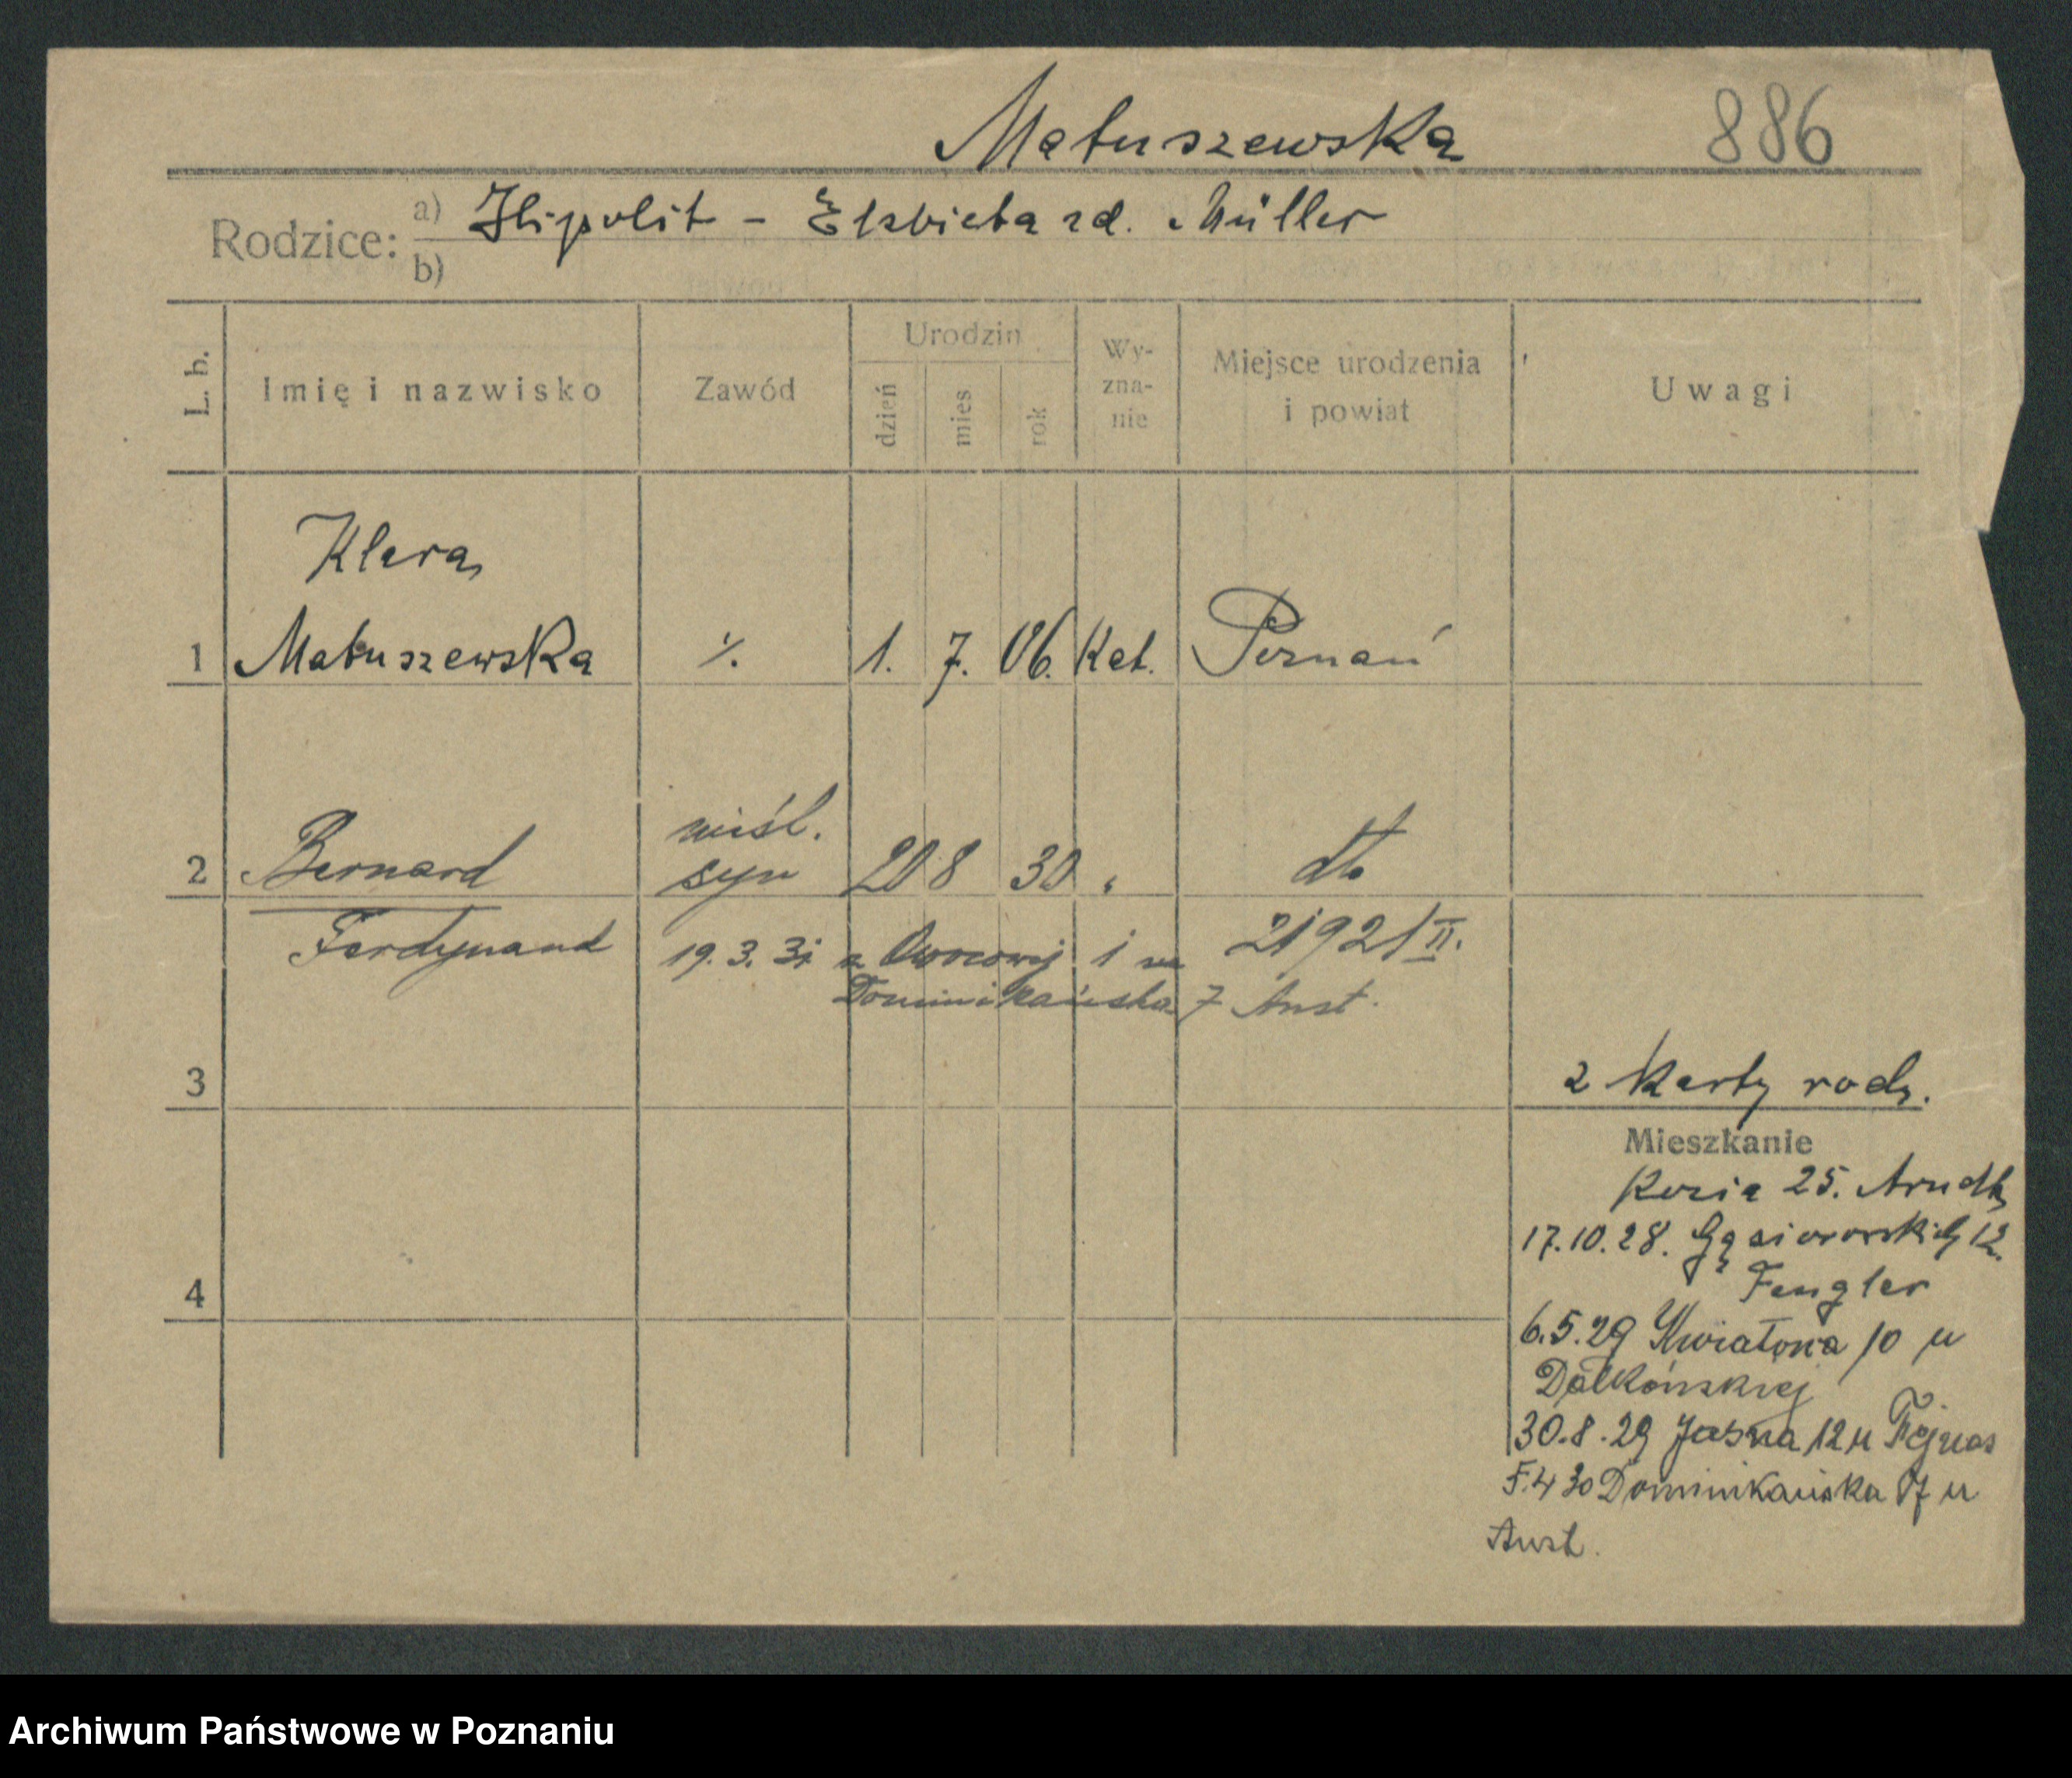 Matuszewska 886
Rodzice: a) Hipolit - Elżbieta zd. Müller
b)
L. b. Imię i nazwisko Zawód Urodzin dzień mies rok Wy-zna-nie Miejsce urodzenia i powiat Uwagi
Klara
1 Matuszewska ·/. 1. 7. 06. Kat. Poznań
nieśl.
2 Bernard syn 20 8 30 " dto
Ferdynand 19. 3. 31 z Owocowej 1 na 21921/II.
Dominikańska 7 Anst.
3
2 Karty rodz.
Mieszkanie
Kozia 25. Arndt
17.10.28. Gąsiorowskich 12.
Fengler
4
6.5.29 Kwiatowa 10 u
Dałkońskiej
30.8.29 Jasna 12 u
4 30 Dominikańska 7 u
Anst.
Archiwum Państwowe w Poznaniu